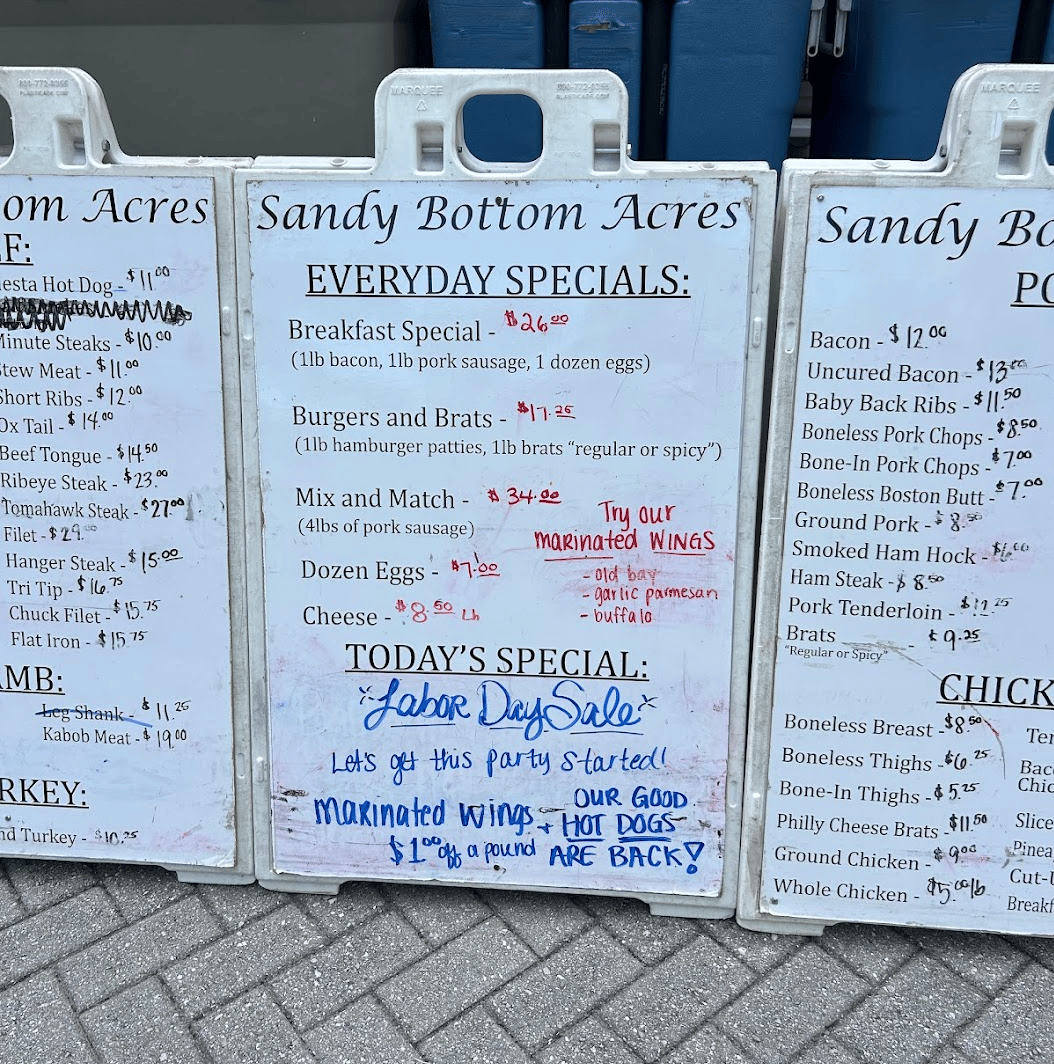 800-772-0355
PLASTICADE.COM
om Acres
F:
esta Hot Dog - $11.00
Minute Steaks - $10.00
Stew Meat - $11.00
Short Ribs - $12.00
Ox Tail - $14.00
Beef Tongue - $14.50
Ribeye Steak - $23.00
Tomahawk Steak - $27.00
Filet - $29.00
Hanger Steak - $15.00
Tri Tip - $16.75
Chuck Filet - $15.75
Flat Iron - $15.75
MB:
Leg Shank - $11.25
Kabob Meat - $19.00
RKEY:
nd Turkey - $10.25
MARQUEE
800-772-0355
PLASTICADE.COM
Sandy Bottom Acres
EVERYDAY SPECIALS:
Breakfast Special - $26.00
(1lb bacon, 1lb pork sausage, 1 dozen eggs)
Burgers and Brats - $17.25
(1lb hamburger patties, 1lb brats “regular or spicy”)
Mix and Match - $34.00
(4lbs of pork sausage)
Dozen Eggs - $7.00
Cheese - $8.50 Lb
Try our
MARINATED WINGS
- old bay
- garlic parmesan
- buffalo
TODAY'S SPECIAL:
Labor Day Sale
Let's get this party started!
Marinated Wings
$1.00 off a pound
+ OUR GOOD
HOT DOGS
ARE BACK!
MARQUEE
Sandy Bo
PO
Bacon - $12.00
Uncured Bacon - $13.00
Baby Back Ribs - $11.50
Boneless Pork Chops - $8.50
Bone-In Pork Chops - $7.00
Boneless Boston Butt - $7.00
Ground Pork - $8.50
Smoked Ham Hock - $6.00
Ham Steak - $8.50
Pork Tenderloin -
Brats - $9.25
“Regular or Spicy”
CHICK
Boneless Breast - $8.50
Boneless Thighs - $6.25
Bone-In Thighs - $5.25
Philly Cheese Brats - $11.50
Ground Chicken - $9.00
Whole Chicken - $5.00 lb
Ter
Bac
Chic
Slice
Pinea
Cut-U
Breakf